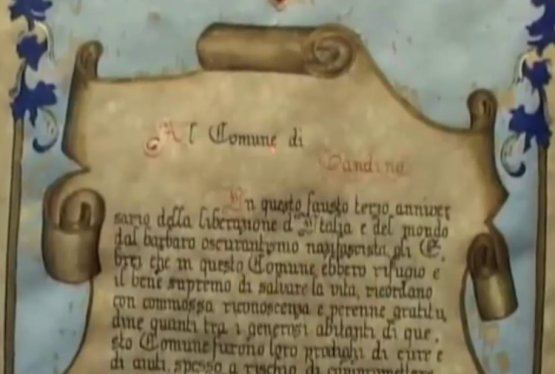 Al Comune di
Gandino
In questo fausto terzo anniver
sario della liberazione d'Italia e del mondo
dal barbaro oscurantismo nazifascista, gli E,
brei che in questo Comune ebbero rifugio e
il bene supremo di salvare la vita, ricordano
con commossa riconoscenza e perenne gratitu,
dine quanti tra i generosi abitanti di que,
sto Comune furono loro prodighi di cure e
di aiuti, spesso a rischio di compromettere